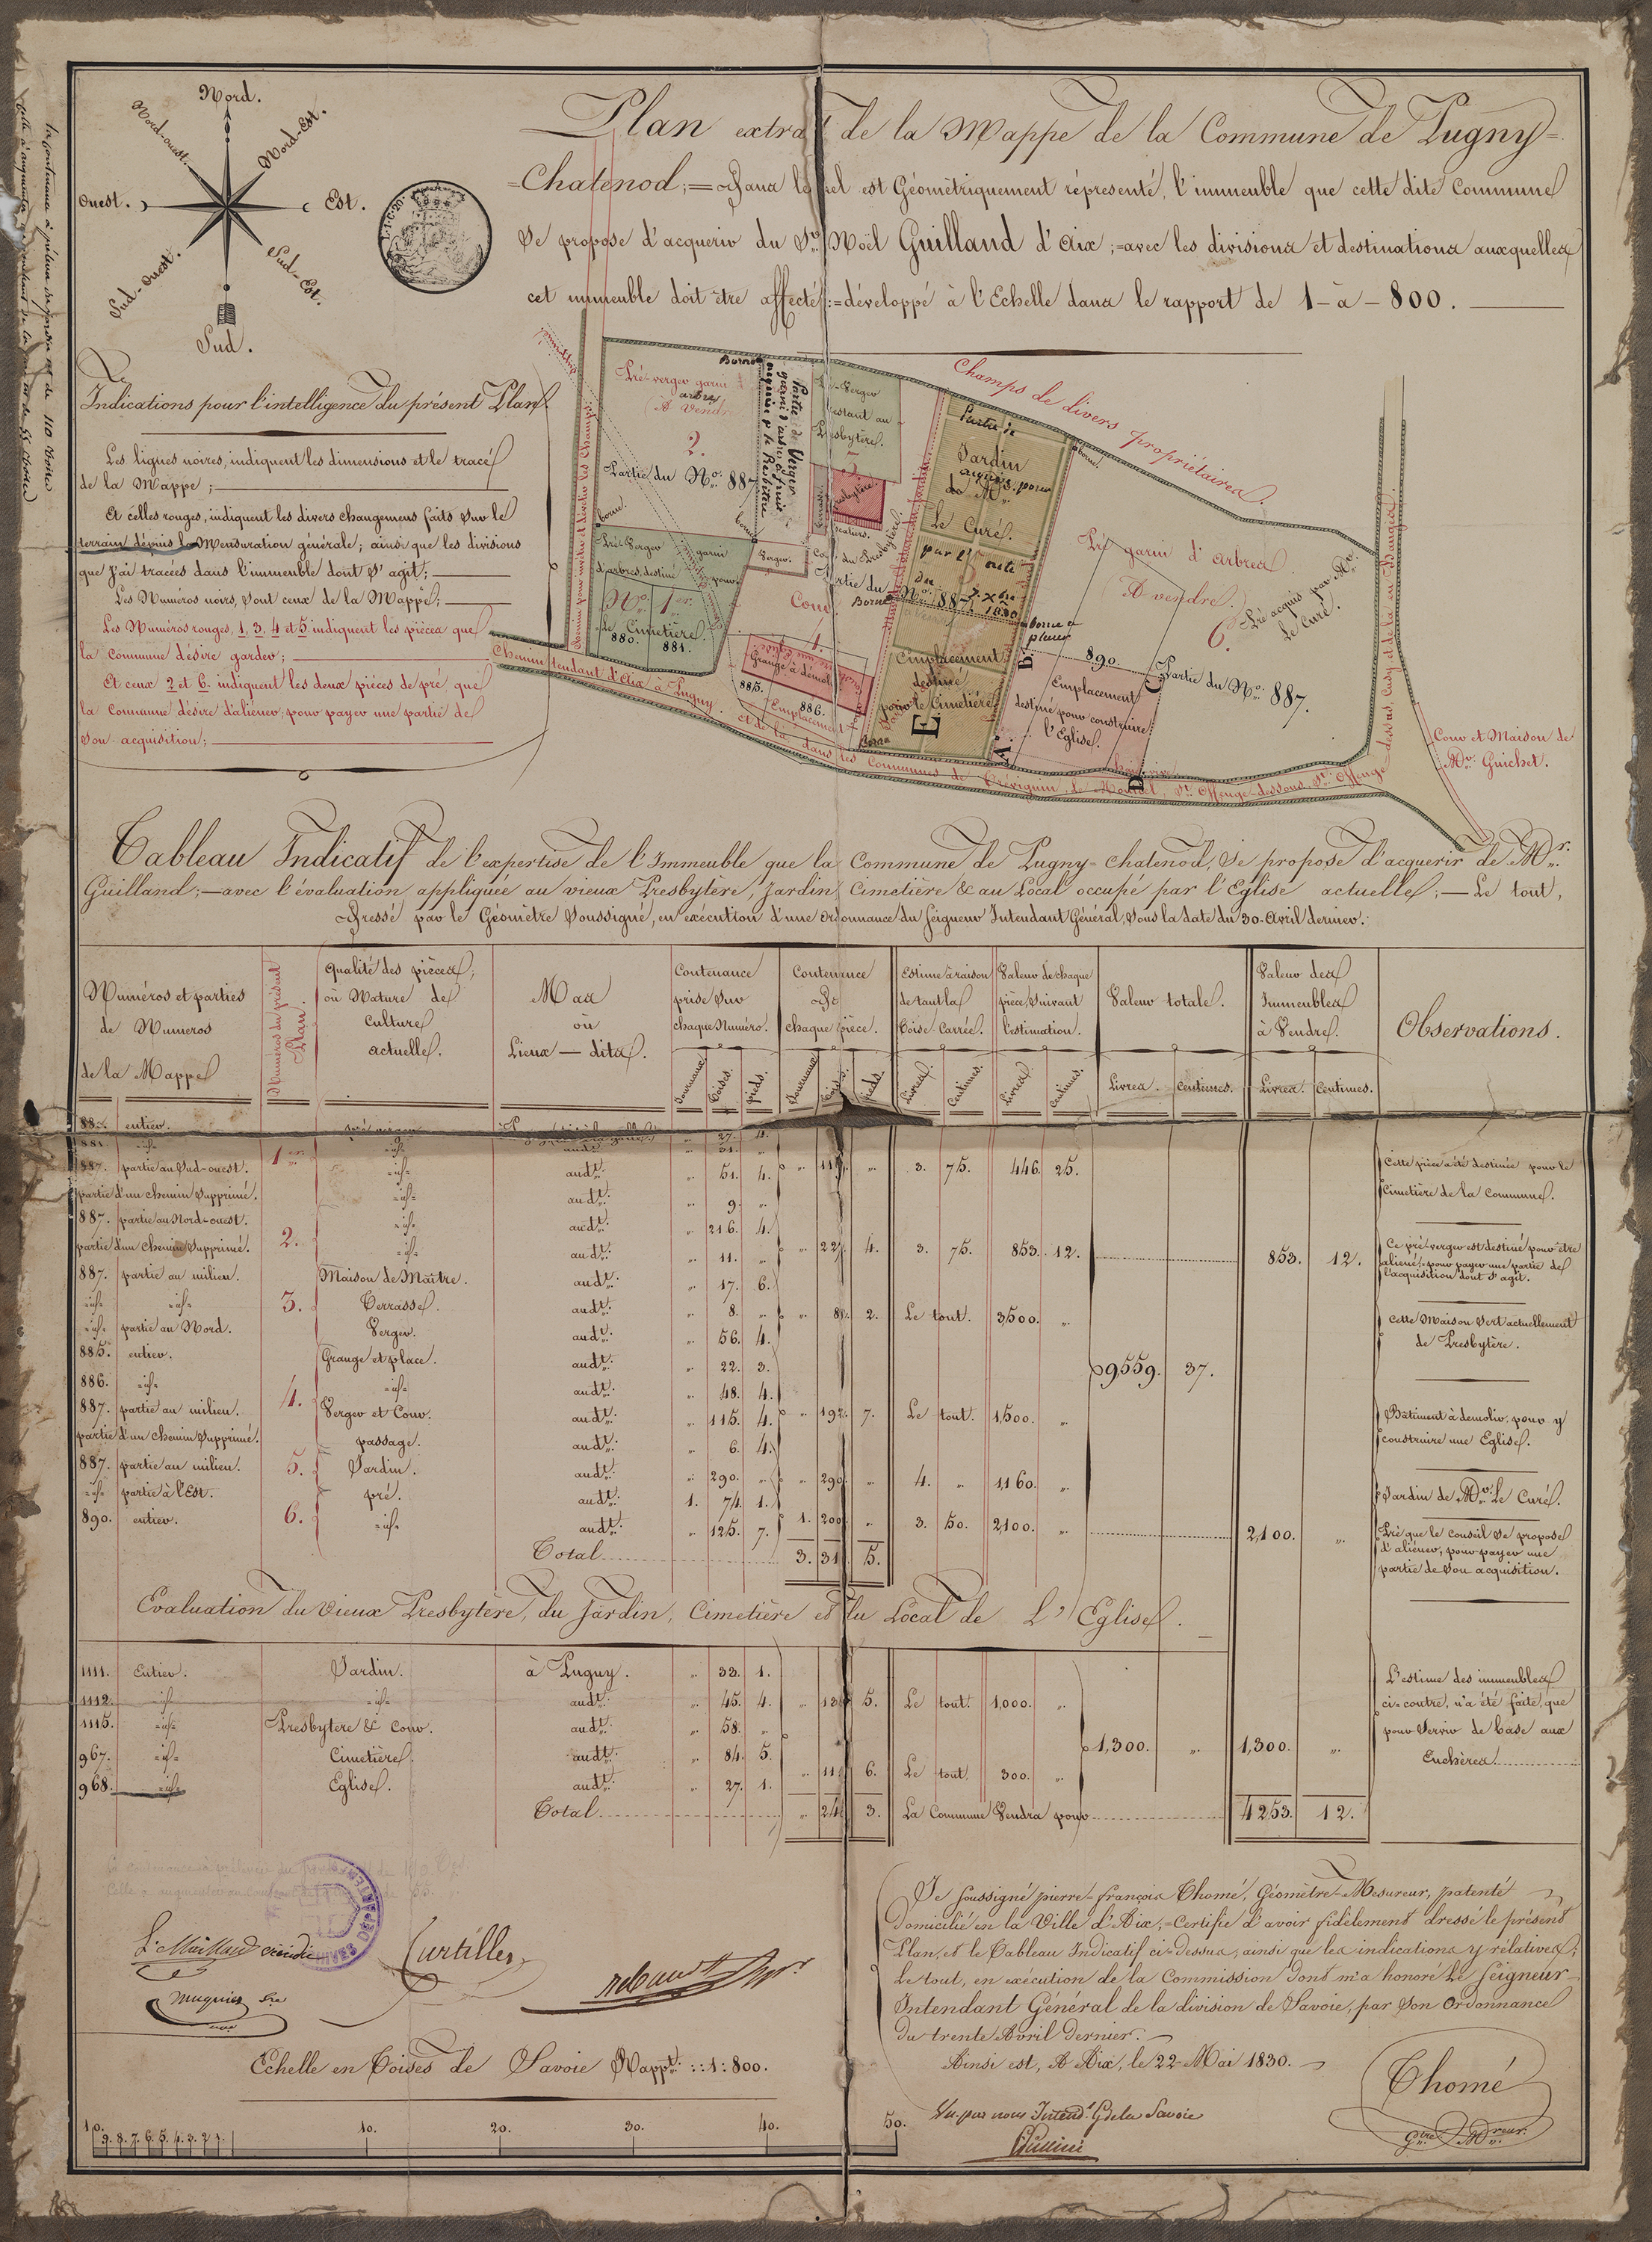 Nord.
Nord-Est.
Est.
Sud-Est.
Sud.
Sud-Ouest.
Ouest.
Nord-ouest.
L.1.C.20.
Plan extrait de la Mappe de la Commune de Pugny=
=Chatenod;=Dans lequel est Géométriquement réprésenté, l'immeuble que cette dite Commune
Se propose d'acquerir du Sr. Noël Guilland d'Aix;=avec les divisions et destinations auxquelles
cet immeuble doit être affecté;=développé à l'Echelle dans le rapport de 1-à-800.
Indications pour l'intelligence du présent Plan.
Les lignes noires, indiquent les dimensions et le tracé
de la Mappe;
Et celles rouges, indiquent les divers changemens faits sur le
terrain dépuis la Mensuration générale; ainsi que les divisions
que j'ai tracées dans l'immeuble dont s'agit;
Les Numéros noirs, sont ceux de la Mappe;
Les Numéros rouges, 1, 3, 4 et 5 indiquent les pièces que
la Commune désire garder;
Et ceux 2 et 6. indiquent les deux pièces de pré que
la Commune désire d'aliéner, pour payer une partie de
son acquisition;
Pré-verger garni
arbres
(A Vendre
2.
Partie du No. 887
Borne
Partie de Verger
garni d'arbres à fruit
acquise p. le Presbitère
borne.
borne
Pré-Verger
restant au
Presbytère.
3.
Presbytère.
Pré-Verger garni
d'arbres, destiné pour
No. 1er
le Cimetière.
880.
881.
Verger.
Cour du Presbytère.
Partie du No. 887.
Borne
Cour
4.
Grange à démolir
885.
886.
Emplacement
Partie de
Jardin
acquis. pour
de Mr.
Le Curé.
par l'acte
du
7. Xbre
1830
5
Emplacement
destiné
pour le Cimetière
E
Borne
borne.
borne
B.
A.
C
D
890.
Emplacement
destiné pour construire
l'Eglise.
Pré garni d'arbres
(A vendre.)
6.
Pré acquis par Mr.
Le Curé.
Partie du No. 887.
Champs de divers propriétaires.
Chemin tendant d'Aix à Pugny.
et de là, dans les Communes de Trévignin, de Montcel, St. Offenge-dessous, St. Offenge-dessus, Cusy et de là en Bauges.
Cour et Maison de
Mr. Guichet.
Tableau Indicatif de l'expertise de l'Immeuble que la Commune de Pugny-Chatenod, Se propose d'acquerir de Mr.
Guilland;—avec l'évaluation appliquée au vieux Presbytère, Jardin, Cimetière & au Local occupé par l'Eglise actuelle;—Le tout,
Dressé par le Géomètre Soussigné, en exécution d'une Ordonnance du Seigneur Intendant Général, Sous la date du 30-Avril dernier.
Numéros et parties de Numéros de la Mappe
Numéros du présent Plan.
Qualité des pièces, où Nature de Culture actuelle.
Mas où Lieux—dits.
Contenance prise sur chaque Numéro.
Contenance De chaque pièce.
Estime à raison de tant la Toise-Carrée.
Valeur de chaque pièce, suivant l'estimation.
Valeur totale.
Valeur des Immeubles à Vendre.
Observations.
Journaux. Toises. pieds. Journaux. Toises. pieds. Livres. Centimes. Livres. Centimes. Livres. Centimes. Livres. Centimes.
880. entier. „ 27. 4.
881. =id= =id= audt. „ 31. „
887. partie au Sud-ouest. 1er =id= audt. „ 51. 4. „ 11 „ 3. 75. 446. 25. Cette pièce a été destinée pour le
partie d'un Chemin supprimé. =id= audt. „ 9. „ Cimetière de la Commune.
887. partie au Nord-ouest. =id= audt. „ 216. 4.
partie d'un Chemin Supprimé. 2. =id= audt. „ 11. „ „ 227. 4. 3. 75. 853. 12. 853. 12. Ce pré-verger est destiné pour être
aliené, pour payer une partie de
l'acquisition dont s'agit.
887. partie au milieu. Maison de Maître. audt. „ 17. 6.
=id= =id= 3. Terrasse. audt. „ 8. „ „ 8 2. Le tout. 3,500. „ Cette Maison sert actuellement
=id= partie au Nord. Verger. audt. „ 56. 4. de Presbytère.
885. entier. Grange et place. audt. „ 22. 3. 9,559. 37.
886. =id= =id= audt. „ 48. 4.
887. partie au milieu. 4. Verger et Cour. audt. „ 115. 4. „ 192. 7. Le tout. 1,500. „ Bâtiment à démolir, pour y
partie d'un Chemin Supprimé. passage. audt. „ 6. 4. construire une Eglise.
887. partie au milieu. 5. Jardin. audt. „ 290. „ „ 290. „ 4. „ 1160. „ Jardin de Mr. Le Curé.
=id= partie à l'Est. pré. audt. 1. 74. 1.
890. entier. 6. =id= audt. „ 125. 7. 1. 200 „ 3. 50. 2,100. „ 2,100. „ Pré que le Conseil Se propose
d'aliéner, pour payer une
partie de Son acquisition.
Total 3. 31 5.
Evaluation du vieux Presbytère, du Jardin, Cimetière et du Local de L'Eglise.
1111. Entier. Jardin. à Pugny. „ 33. 1.
1112. =id= =id= audt. „ 45. 4. „ 13 5. Le tout. 1,000. „
1115. =id= Presbytère & Cour. audt. „ 58. „
967. =id= Cimetière. audt. „ 84. 5.
968. =id= Eglise. audt. „ 27. 1. „ 11 6. Le tout. 300. „
1,300. „ 1,300. „
L'estime des immeubles
ci-contre, n'a été faite, que
pour Servir de base aux
Enchères
Total „ 24 3. La Commune Vendra pour 4253. 12.
Curtillet
Echelle en Toises de Savoie Rappt. ::1:800.
10. 9. 8. 7. 6. 5. 4. 3. 2. 1. 10. 20. 30. 40. 50.
Je soussigné pierre-françois Thomé, Géomètre-Mesureur, patenté
domicilié en la Ville d'Aix;=Certifie d'avoir fidèlement dressé le présent
Plan, et le Tableau Indicatif ci-dessus, ainsi que les indications y rélatives;
Le tout, en exécution de la Commission dont m'a honoré Le Seigneur
Intendant Général de la division de Savoie, par Son Ordonnance
du trente Avril dernier.
Ainsi est, A Aix, le 22-Mai 1830.
Thomé
Vu par nous Intendt. Gl de la Savoie